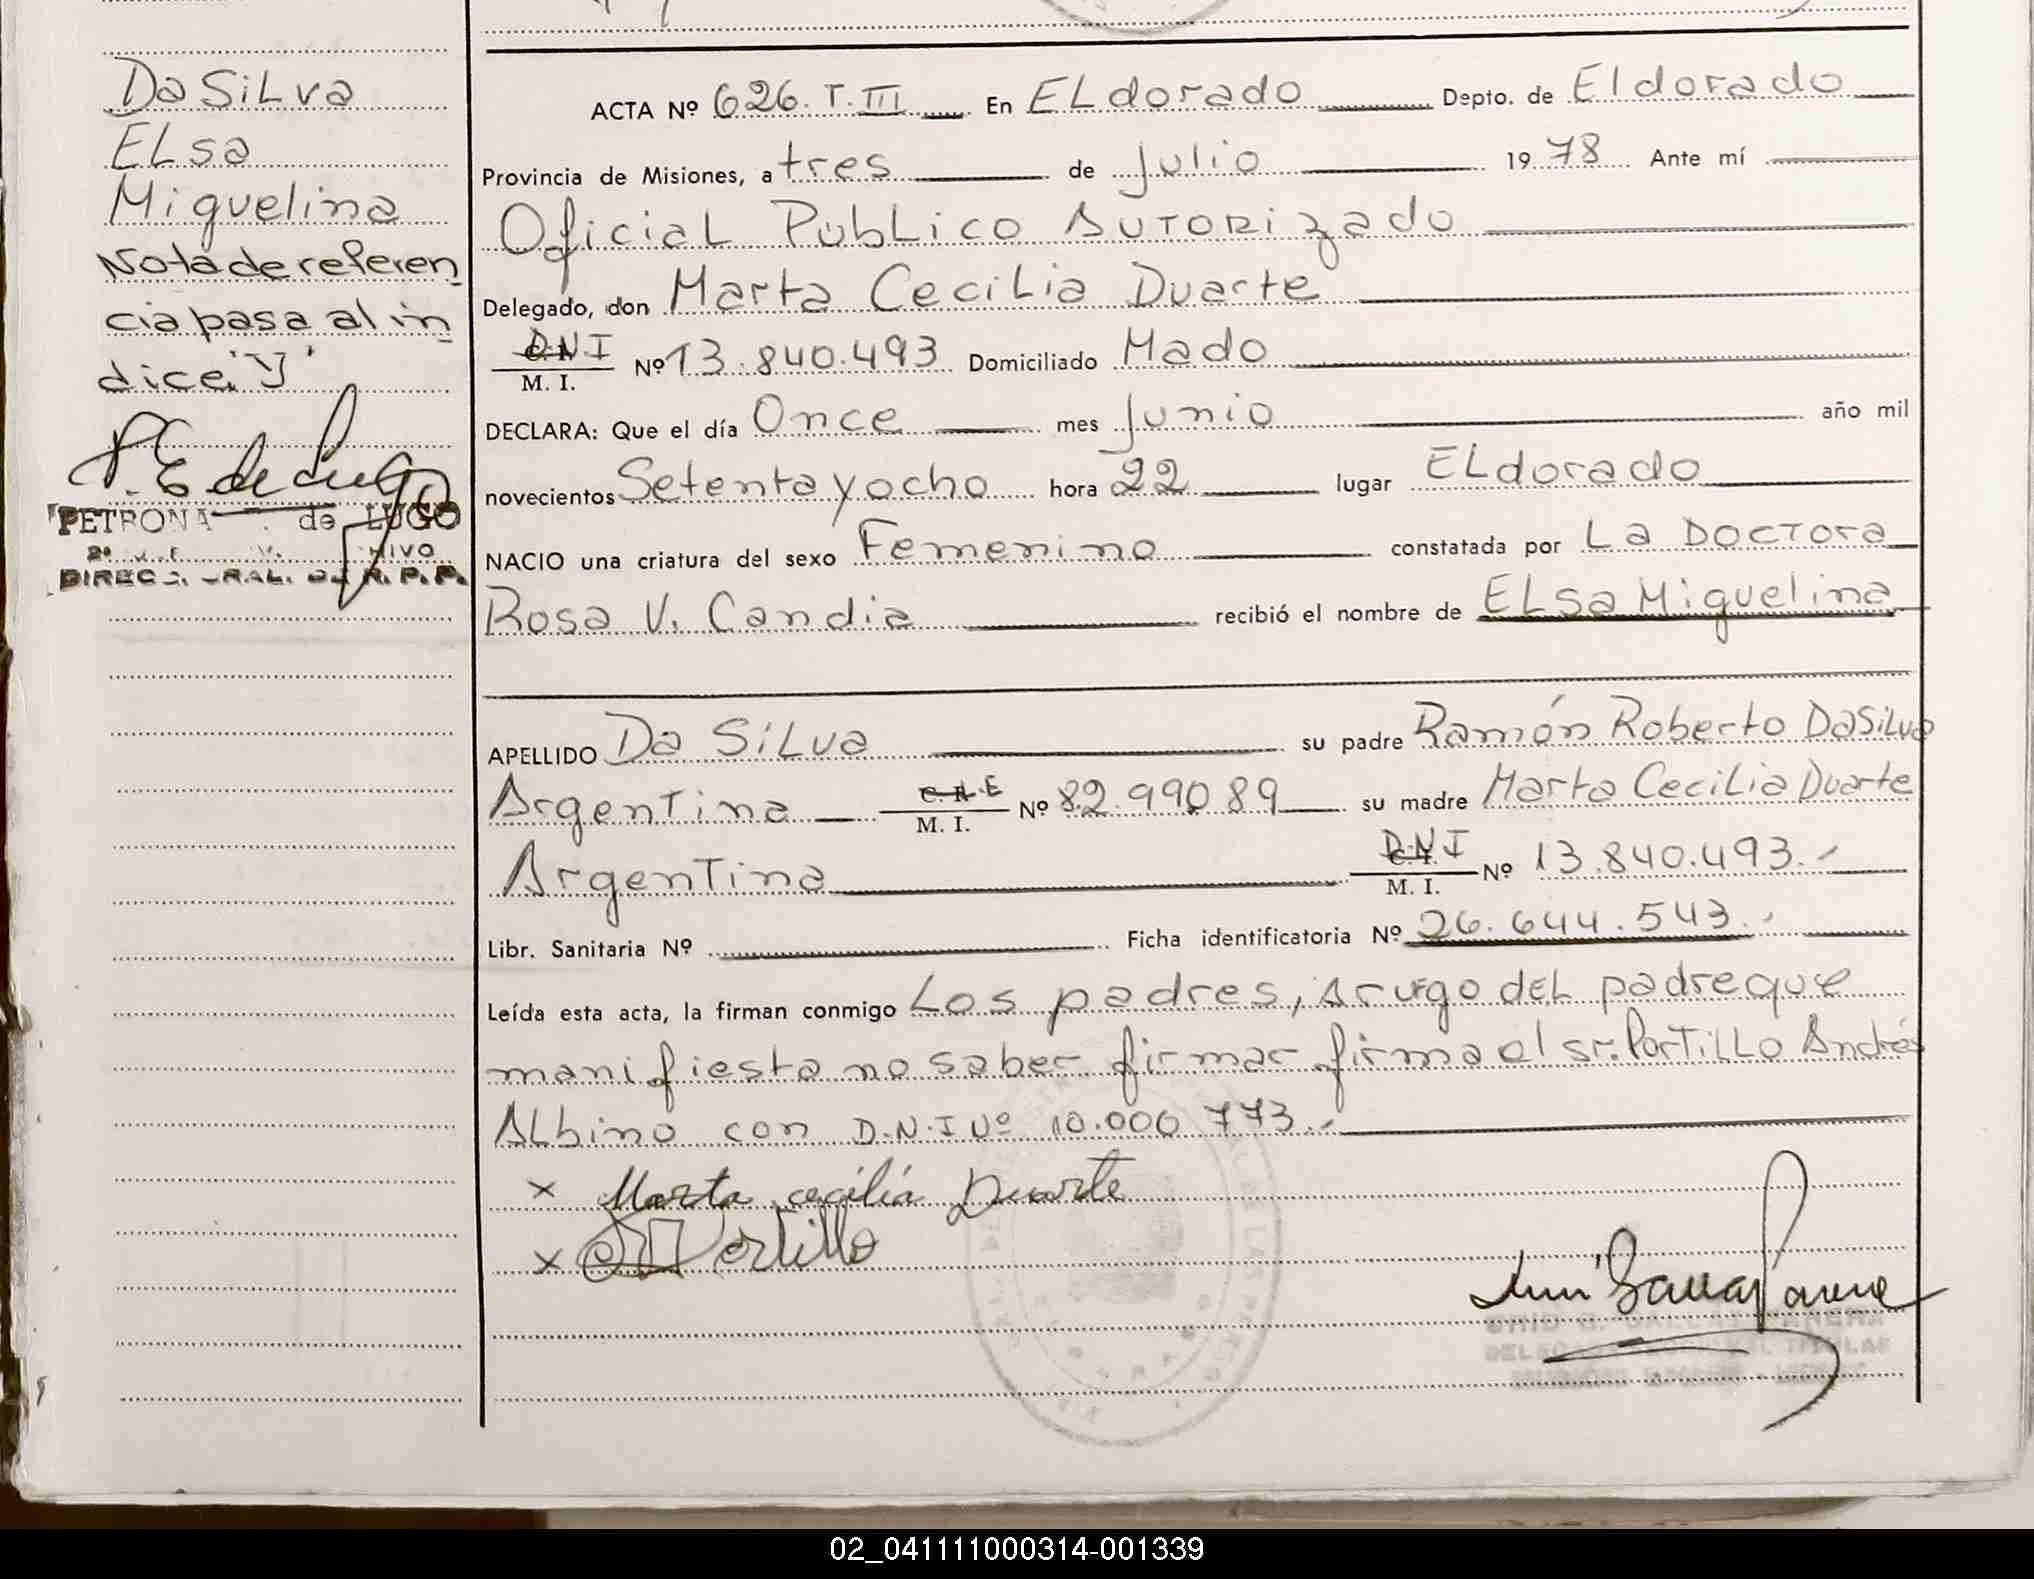 Da Silva
Elsa
Miguelina
Nota de referen
cia pasa al in
dice "J"
P. E de Lugo
PETRONA de LUGO
ACTA Nº 626. T. III En ELdorado Depto. de Eldorado
Provincia de Misiones, a tres de Julio 19 78 Ante mí
Oficial Publico Autorizado
Delegado, don Marta Cecilia Duarte
D.N.I
M. I. Nº 13.840.493 Domiciliado Mado
DECLARA: Que el día Once mes Junio año mil
novecientos Setenta y ocho hora 22 lugar ELdorado
NACIO una criatura del sexo Femenino constatada por La Doctora
Rosa V. Candia recibió el nombre de ELsa Miguelina
APELLIDO Da Silva su padre Ramón Roberto DaSilva
Argentina M. I. Nº 82.99089 su madre Marta Cecilia Duarte
Argentina D.N.I M. I. Nº 13.840.493.-
Libr. Sanitaria Nº Ficha identificatoria Nº 26.644.543.-
Leída esta acta, la firman conmigo Los padres, A ruego del padre que
manifiesta no saber firmar firma el sr. Portillo Andrés
Albino con D.N.I Nº 10.006 773.-
x Marta cecilia Duarte
x Portillo
02_041111000314-001339